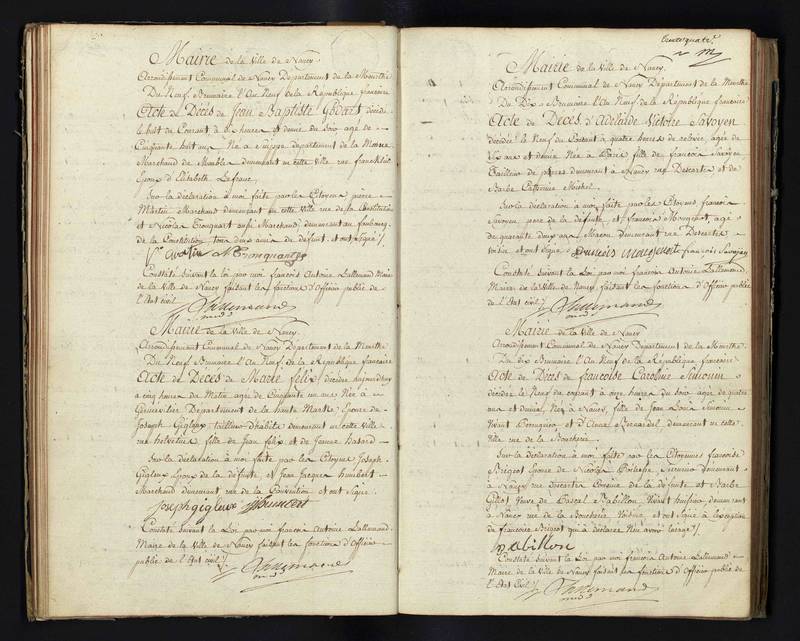 Mairie de la Ville de Nancy.
Arrondissement Communal de Nancy Département de la Meurthe
Du Neuf Brumaire l'An Neuf de la République française
Acte de Décès de Jean Baptiste Godart décédé
le huit du Courant à heure et demie du soir agé de
Cinquante huit ans Né à département de la Meuse
Marchand de Meubles demeurant en cette Ville rue franklin
Epoux d'Elisabeth Lefranc,
Sur la déclaration à moi faite par les Citoyens pierre
Martin Marchand demeurant en cette Ville rue de la Constitution
et Nicolas Tronquart aussi Marchand, demeurant au faubourg
de la Constitution tous deux amis du défunt, et ont signé /.
Constaté Suivant la Loi par moi françois Antoine Lallemand Maire
de la Ville de Nancy faisant les fonctions d'Officier public de
l'état civil /.
Lallemand
Mairie de la Ville de Nancy
Arrondissement Communal de Nancy Département de la Meurthe
Du Neuf Brumaire l'An Neuf de la République française
Acte de Décès de Marie felix décédée aujourdhuy
a cinq heures du Matin agée de Cinquante un ans Née à
Département de la haute Marthe Epouse de
Joseph Gigleux tailleur d'habits demeurant en cette Ville
rue helvetius, fille de Jean felix et de Jeanne
Sur la déclaration à moi faite par les Citoyens Joseph
Gigleux Epoux de la défunte et Jean Jacques humbert
Marchand demeurant rue de la Convention et ont Signé
Joseph gigleux JJhumbert
Constaté suivant la Loi par moi françois Antoine Lallemand
Maire de la Ville de Nancy faisant les fonctions d'Officier
public de l'état civil /.
Lallemand
trente quatre
Mairie de la Ville de Nancy.
Arrondissement Communal de Nancy Département de la Meurthe
Du Dix Brumaire l'An Neuf de la République française
Acte de Décès d'Adelaide Victoire Savoyen
décédée le Neuf du Courant à quatre heures de relevée, agée de
ans et demie Née à Paris fille de françois Savoyen
Tailleur de pierres demeurant à Nancy rue Descartes et de
Barbe Catherine Michel.
Sur la déclaration à moi faite par les Citoyens françois
Savoyen pere de la défunte, et francois Mougenot, agé
de quarante deux ans Macon demeurant rue Descartes
voisin, et ont signé francois mougenot françois Savoyen
Constaté Suivant la Loi par moi françois Antoine Lallemand
Maire de la Ville de Nancy, faisant les fonctions d'Officier public
de l'état civil /.
Lallemand
Mairie de la Ville de Nancy
Arrondissement Communal de Nancy Département de la Meurthe
Du dix Brumaire l'An Neuf de la République française
Acte de Décès de françoise Caroline Simonin
décédée le Neuf du courant à onze heures du soir agée de quatre
ans et demie, Née à Nancy, fille de Jean Louis Simonin
Vivant et d'Anne demeurant en cette
Ville rue de la Boucherie.
Sur la déclaration à moi faite par les Citoyennes francoise
Brégeot Epouse de Nicolas demeurant
à Nancy rue Descartes Cousine de la défunte et Barbe
Veuve de Pascal Babillon, Vivant huissier demeurant
à Nancy rue de la Boucherie Voisine, et ont signé à l'exception
de francoise Brégeot qui à déclaré Ne savoir /.
Babillon
Constaté Suivant la Loi par moi françois Antoine Lallemand
Maire de la Ville de Nancy faisant les fonctions d'Officier public de
l'état Civil /.
Lallemand